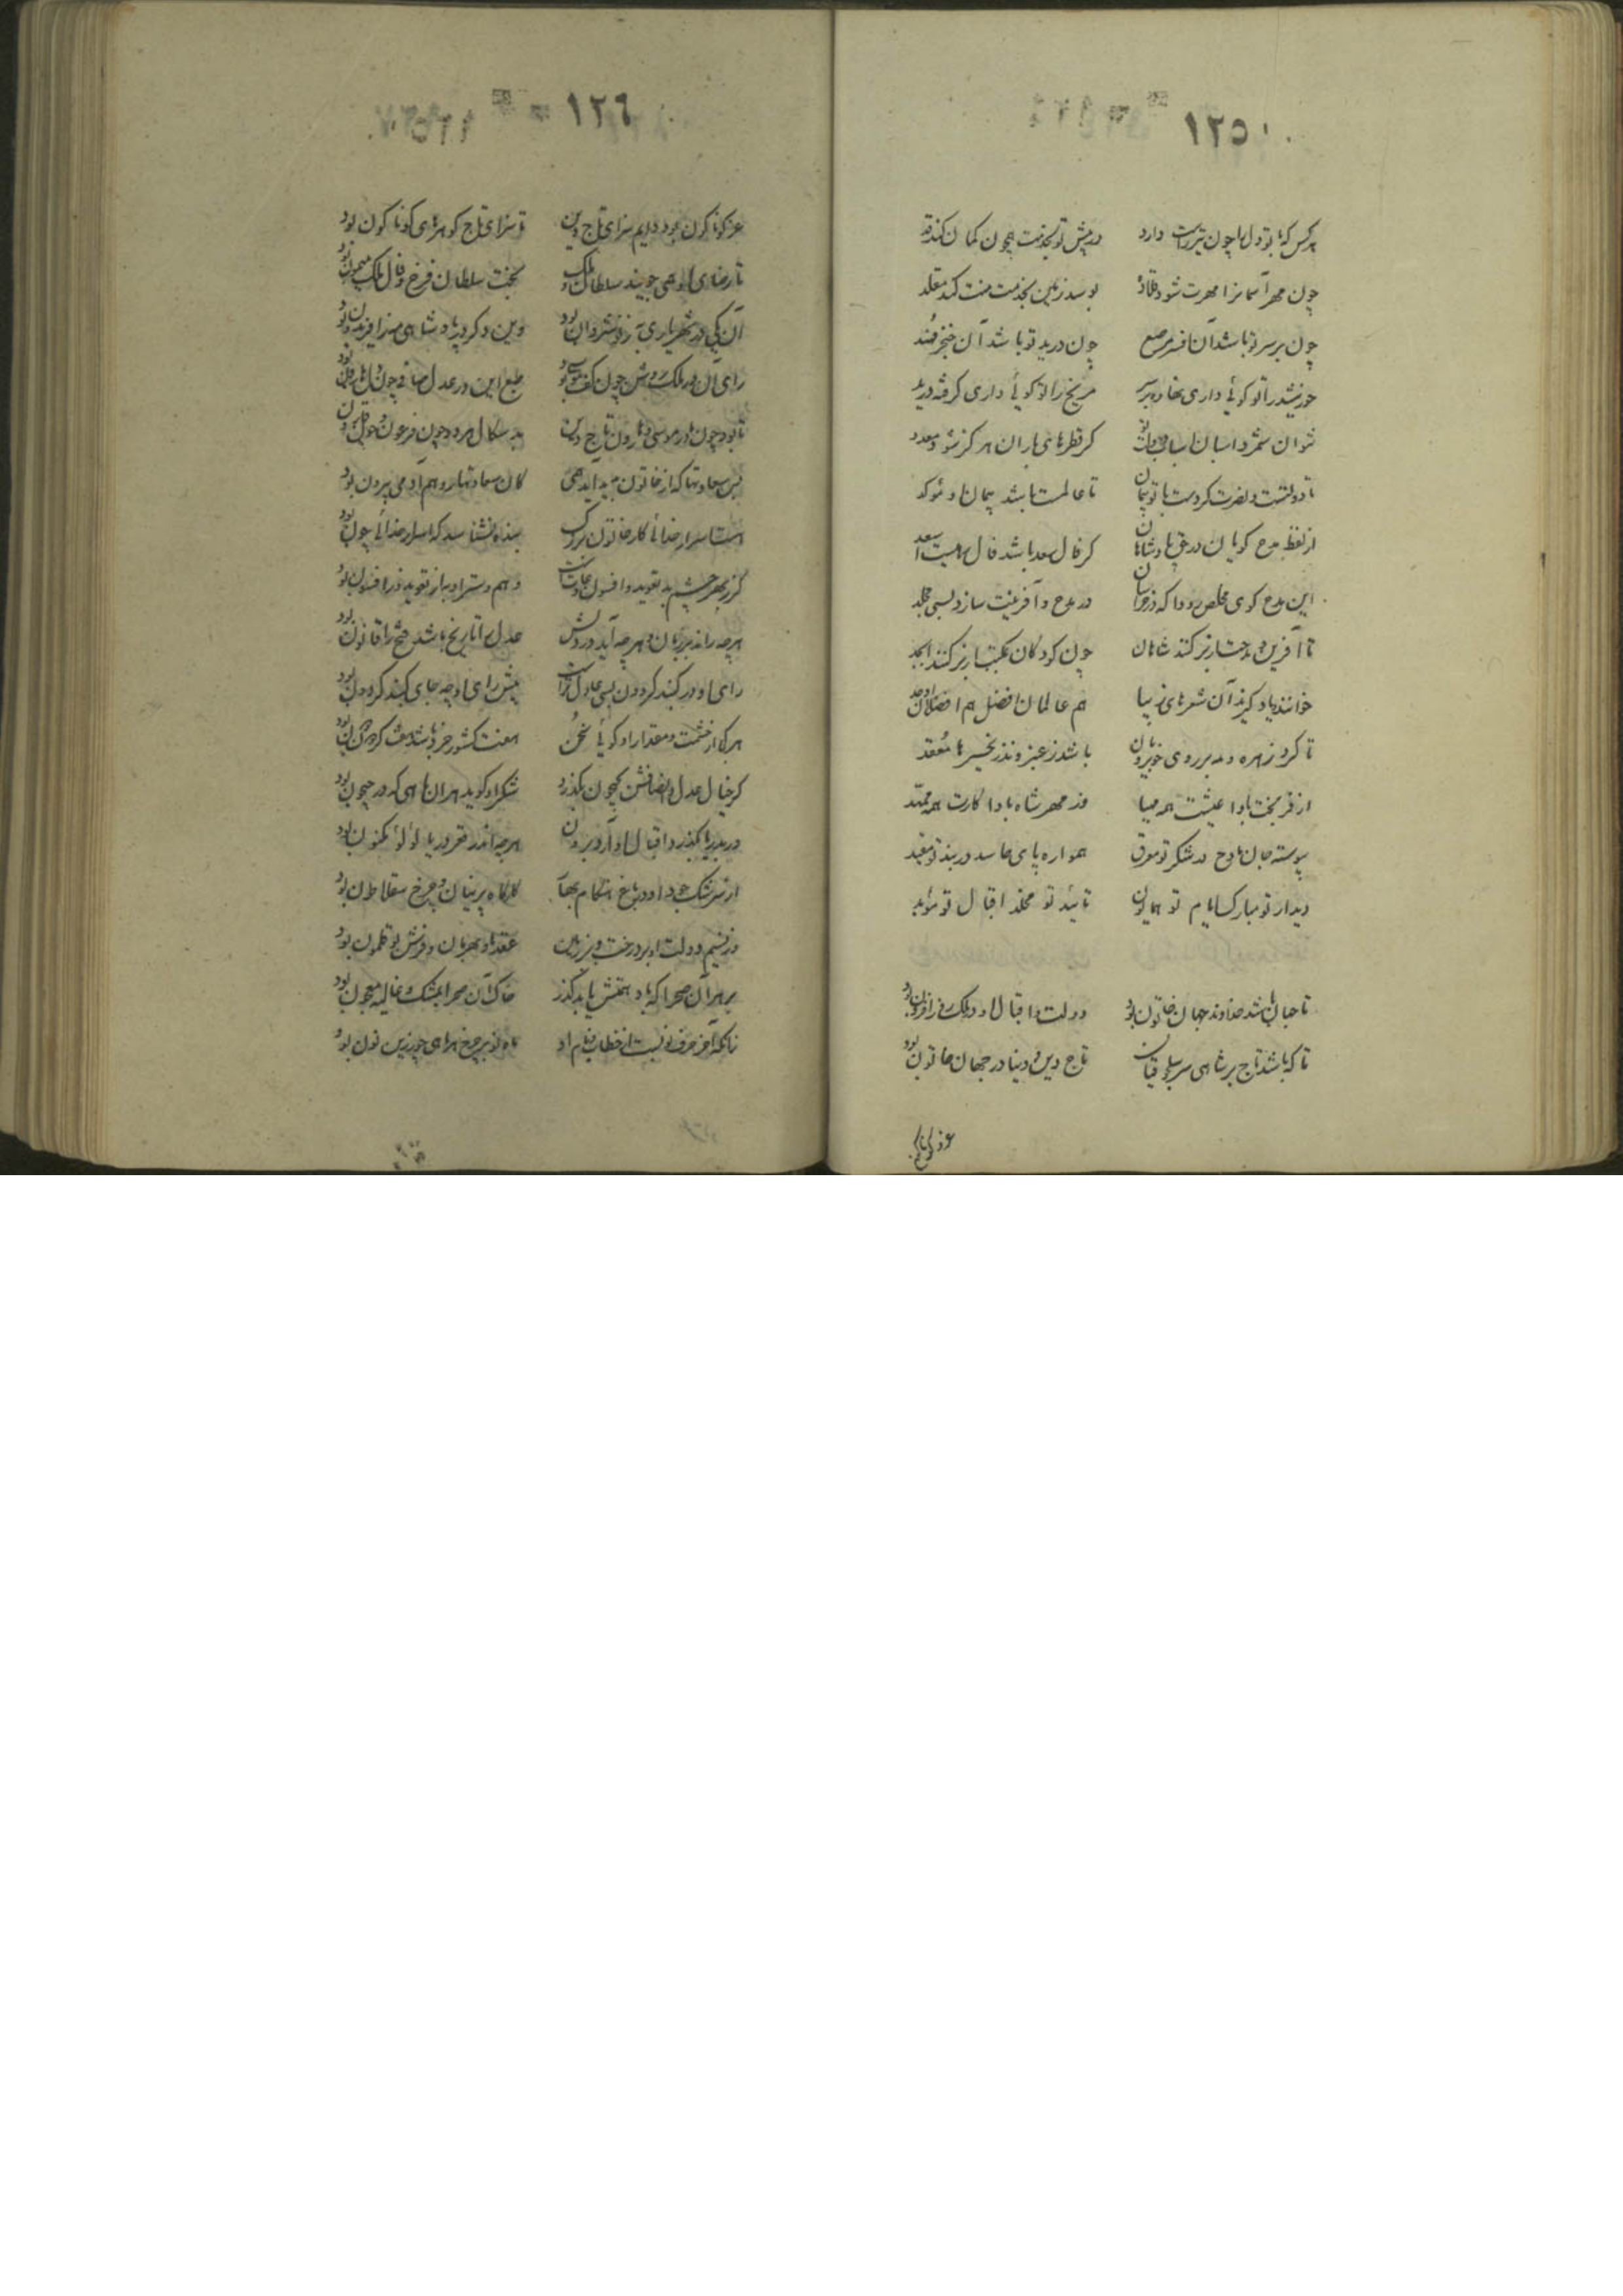 ١٢٥
هر کس که با تو دل را چون تیر راست دارد در پیش تو بخدمت همچون کمان کند قد
چون مهر آسمانرا مهرت شود قلاده بوسد زمین بخدمت منت کند مقلد
چون بر سر تو باشد آن افسر مرصع چون در ید تو باشد آن خنجر مهند
خورشید را تو کوئی داری نهاده بر سر مریخ را تو کوئی داری کرفته در ید
نتوان شمرد آسان اسباب دولت تو کر قطرهای باران هرکز شود معدد
تا دولتست و نصرت کردست با تو پیمان تا عالمست باشد پیمان او مؤکد
از لفظ مدح کویان در حق پادشاهان کر فال سعد باشد فال است اسعد
این مدح کوی مخلص بودا که در خراسان در مدح و آفرینت سازد بسی مجلد
تا آفرین و مدحت از بر کنند شاهان چون کودکان بمکتب از بر کنند ابجد
خوانند و یاد کیرند آن شعرهای زیبا هم عالمان افضل هم افضلان اوحد
تا کرد زهره و مه بر روی خوبرویان باشد ز عنبر و ند زنجیرها معقد
از فر بخت بادا عیشت همه مهیا وز مهر شاه بادا کارت همه ممهد
پیوسته جان مادح در شکر تو موفق همواره پای حاسد در بند تو مقید
دیدار تو مبارک ایام تو همایون تائید تو مخلد اقبال تو مؤبد
تا جهان باشد خداوند جهان خاتون بود دولت و اقبال او در ملک روز افزون بود
تا که باشد تاج بر شاهی سر سلجوقیان تاج دین و دنیا در جهان خاتون بود
عز کوناکون
١٢٦
عز کوناکون بود دایم سزای تاج دین تا سزای تاج کوهرهای کوناکون بود
تا رضای او همی جویند سلطان و ملک بخت سلطان فرخ و فال ملک میمون بود
آن یکی در شهریاری به ز نوشروان بود وین دکر در پادشاهی به ز افریدون بود
رای آن در ملک روشن چون کف موسی بود طبع این در عدل صافی چون دل هارون بود
تا بود چون مادر موسی و هارون تاج دین بد سکال هر دو چون فرعون و چون قارون بود
بس سعادتها که از خاتون پدید آید همی کان سعادتها ز وهم آدمی بیرون بود
هست اسرار خدائی کار خاتون بزرک بنده نشناسد که اسرار خدائی چون بود
کز بهر چشم بد تعویذ و افسون عادتست وهم و سترا و به از تعویذ و از افسون بود
هر چه راند بر زبان و هر چه آید در دلش عدل را تاریخ باشد فتح را قانون بود
رای او در کنبد کردون بسی عادل تر است پیش رای او چه جای کنبد کردون بود
هر کجا از حشمت و مقدار او کوئی سخن هفت کشور خرد باشد هفت کردون دون بود
کر خیال عدل و انصافش بجیحون بکذرد شکر او کوید هر آن ماهی که در جیحون بود
ور بدریا بکذرد اقبال او آرد برون هر چه اندر قعر دریا لؤلؤ مکنون بود
از سرشک جود او در باغ هنکام بهار کارکاه پرنیان و چرخ سقلاطون بود
وز نسیم دولت او بر درخت و بر زمین عقد مهربان و فرش بوقلمون بود
بر هر آن صحرا که باد همتش یابد کذر خاک آن صحرا بمشک و غالیه معجون بود
زانکه آخر حرف نونست از خطاب و نام او ماه نو بر چرخ هر ماهی چو زرین نون بود